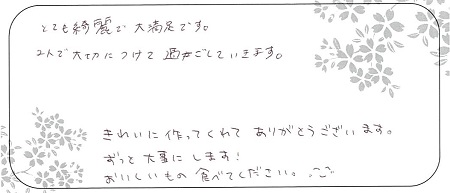 とても綺麗で大満足です。
2人で大切につけて過ごしていきます。
きれいに作ってくれてありがとうございます。
ずっと大事にします!
おいしいもの食べてください。